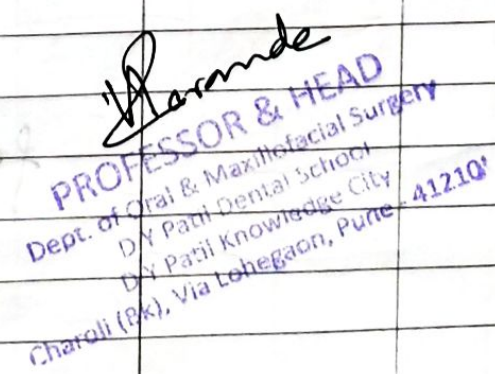 PROFESSOR & HEAD
Dept. of Oral & Maxillofacial Surgery
D Y Patil Dental School
D Y Patil Knowledge City
Charoli (Bk), Via Lohegaon, Pune - 41210